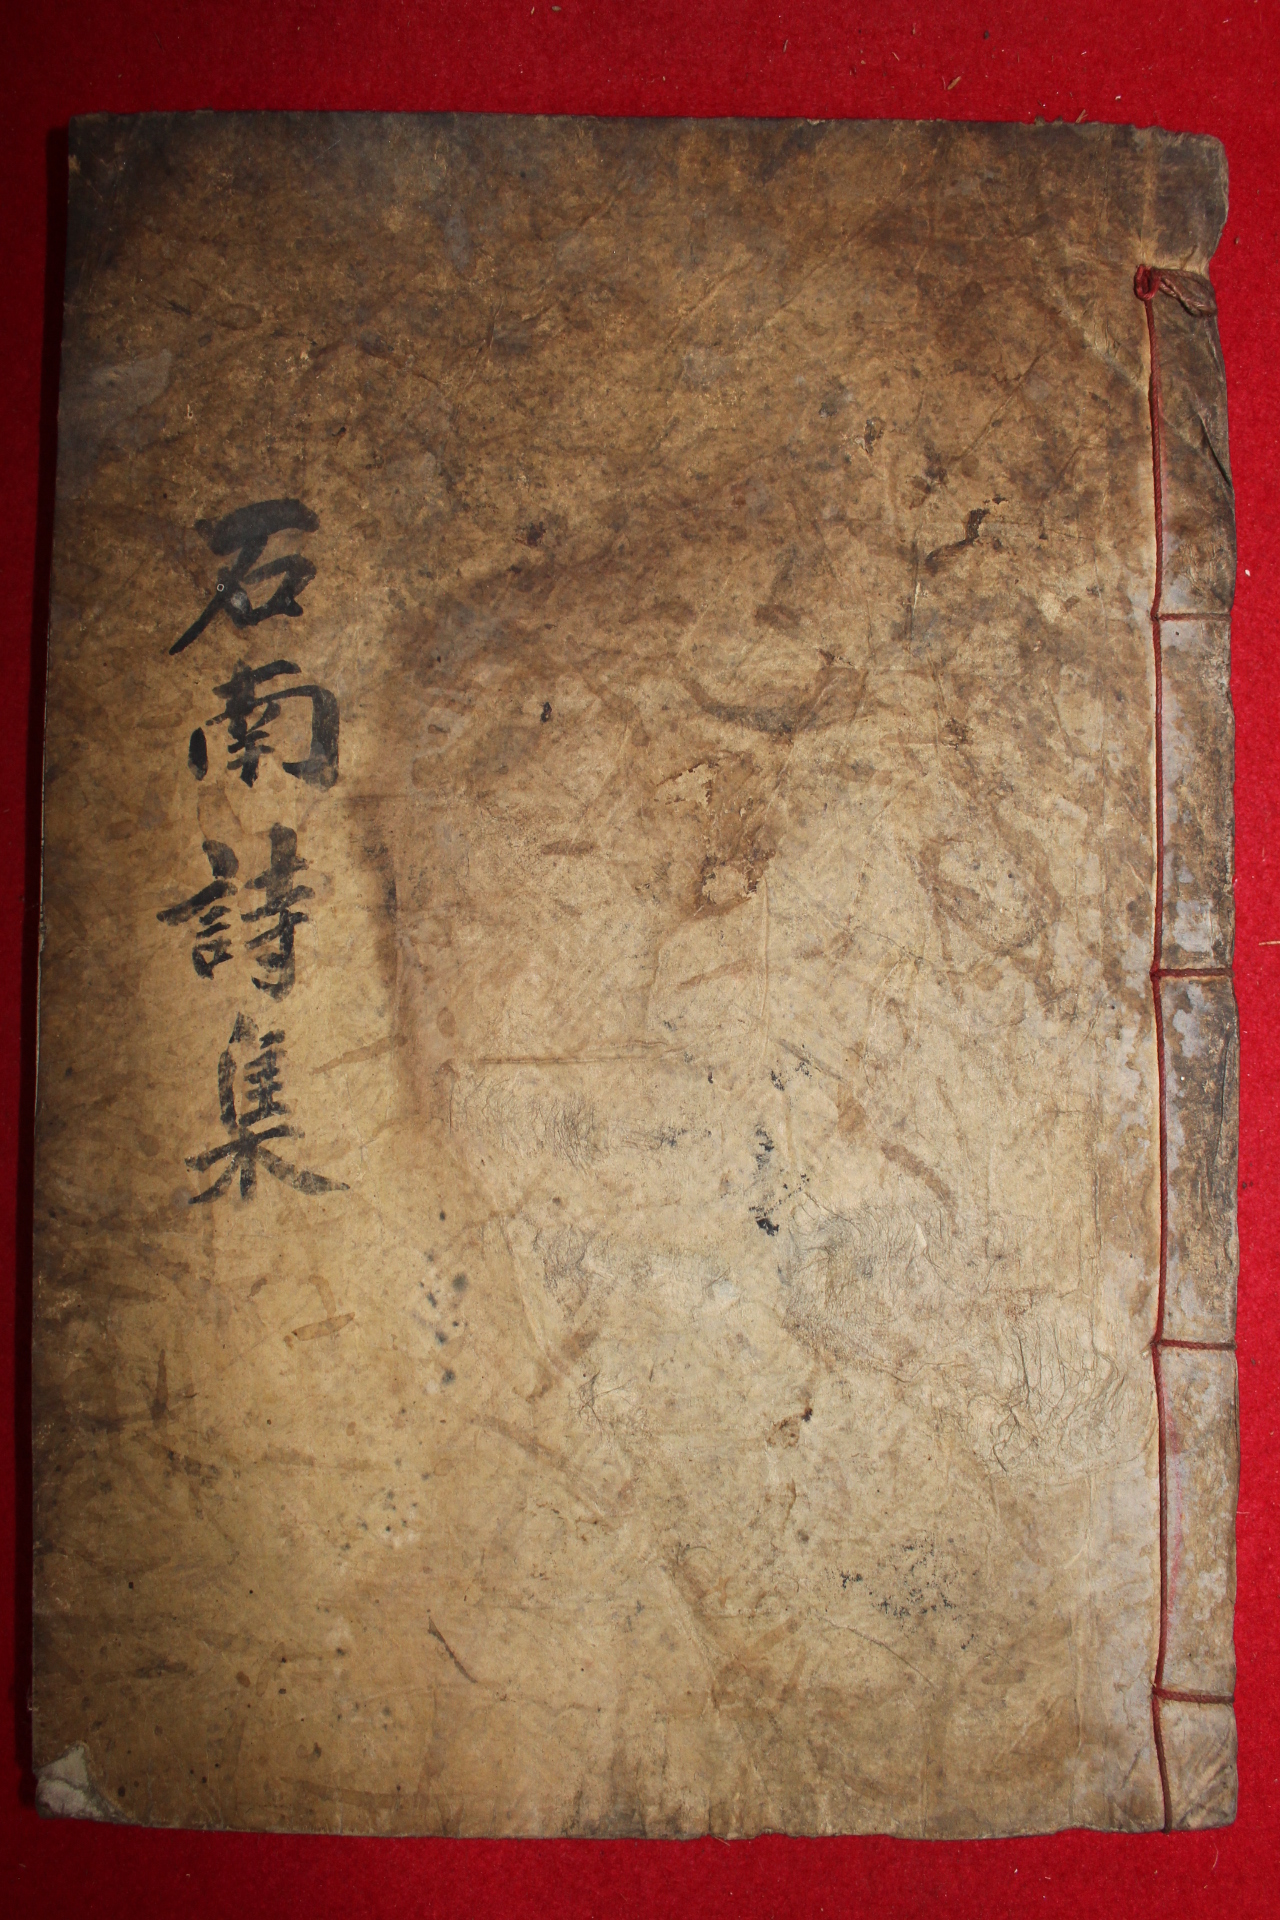 石南詩集